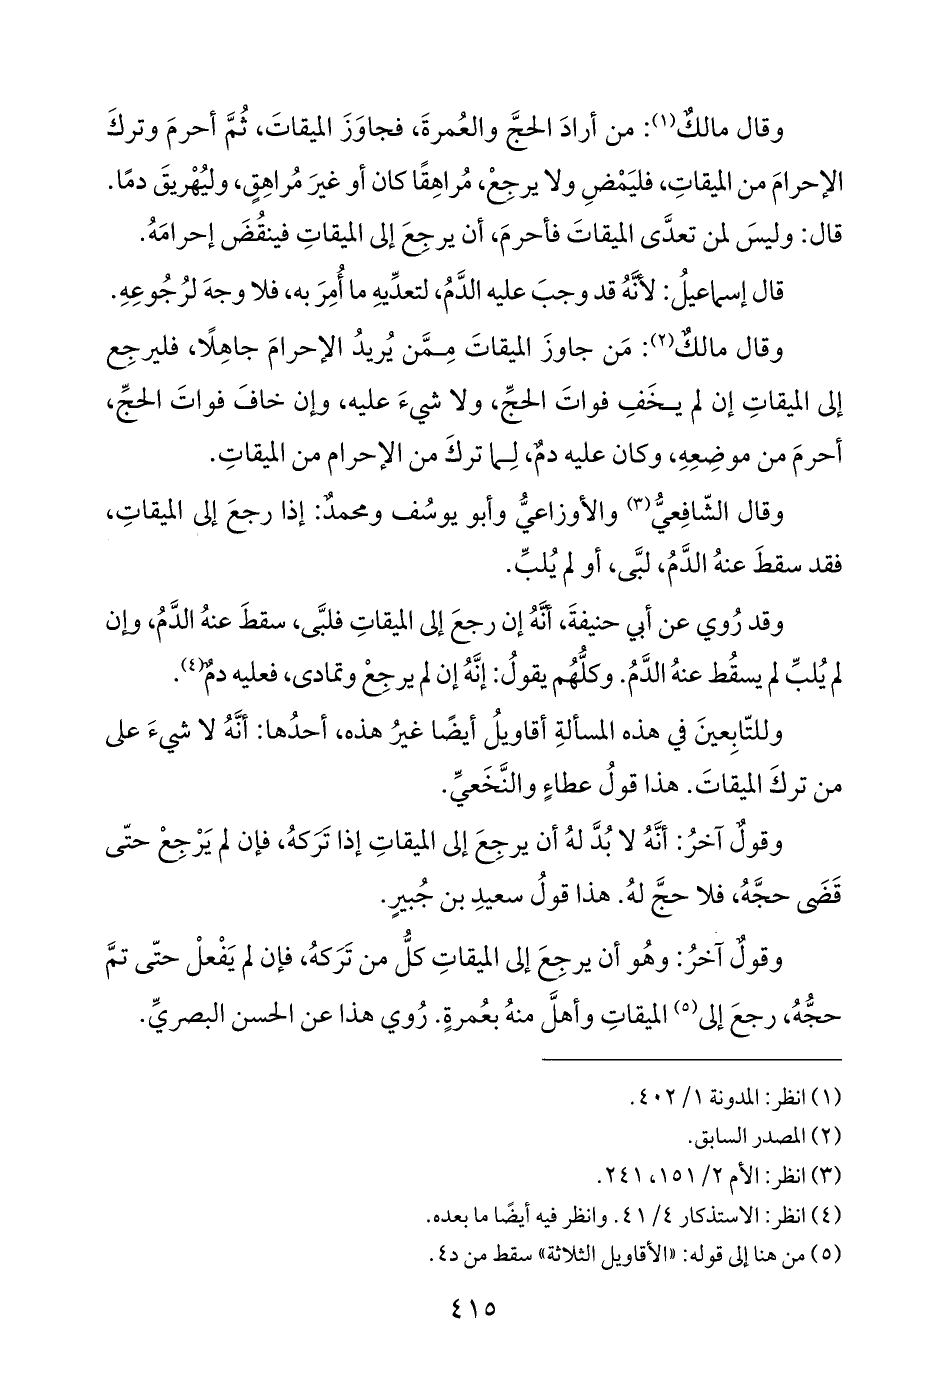 وقال مالكٌ(١): من أرادَ الحجَّ والعُمرةَ، فجاوَزَ الميقاتَ، ثُمَّ أحرمَ وتركَ
الإحرامَ من الميقاتِ، فليَمْضِ ولا يرجِعْ، مُراهِقًا كان أو غيرَ مُراهِقٍ، وليُهْريقَ دمًا.
قال: وليسَ لمن تعدَّى الميقاتَ فأحرمَ، أن يرجِعَ إلى الميقاتِ فينقُضَ إحرامَهُ.
قال إسماعيلُ: لأنَّهُ قد وجبَ عليه الدَّمُ، لتعدِّيهِ ما أُمِرَ به، فلا وجهَ لرُجُوعِهِ.
وقال مالكٌ(٢): مَن جاوزَ الميقاتَ مِـمَّن يُريدُ الإحرامَ جاهِلًا، فليرجِع
إلى الميقاتِ إن لم يـخَفِ فواتَ الحجِّ، ولا شيءَ عليه، وإن خافَ فواتَ الحجِّ،
أحرمَ من موضِعِهِ، وكان عليه دمٌ، لِـما تركَ من الإحرام من الميقاتِ.
وقال الشّافِعيُّ(٣) والأوزاعيُّ وأبو يوسُف ومحمدٌ: إذا رجعَ إلى الميقاتِ،
فقد سقطَ عنهُ الدَّمُ، لبَّى، أو لم يُلبِّ.
وقد رُوي عن أبي حنيفةَ، أنَّهُ إن رجعَ إلى الميقاتِ فلبَّى، سقطَ عنهُ الدَّمُ، وإن
لم يُلبِّ لم يسقُط عنهُ الدَّمُ. وكلُّهُم يقولُ: إنَّهُ إن لم يرجِعْ وتمادى، فعليه دمٌ(٤).
وللتّابِعينَ في هذه المسألةِ أقاويلُ أيضًا غيرُ هذه، أحدُها: أنَّهُ لا شيءَ على
من تركَ الميقاتَ. هذا قولُ عطاءٍ والنَّخَعيِّ.
وقولٌ آخرُ: أنَّهُ لا بُدَّ لهُ أن يرجِعَ إلى الميقاتِ إذا تَرَكهُ، فإن لم يَرْجِعْ حتّى
قَضَى حجَّهُ، فلا حجَّ لهُ. هذا قولُ سعيدِ بن جُبيرٍ.
وقولٌ آخرُ: وهُو أن يرجِعَ إلى الميقاتِ كلُّ من تَرَكهُ، فإن لم يَفْعلْ حتّى تمَّ
حجُّهُ، رجعَ إلى(٥) الميقاتِ وأهلَّ منهُ بعُمرةٍ. رُوي هذا عن الحسن البصريِّ.
(١) انظر: المدونة ١/ ٤٠٢.
(٢) المصدر السابق.
(٣) انظر: الأم ٢/ ١٥١، ٢٤١.
(٤) انظر: الاستذكار ٤/ ٤١. وانظر فيه أيضًا ما بعده.
(٥) من هنا إلى قوله: «الأقاويل الثلاثة» سقط من د٤.
٤١٥